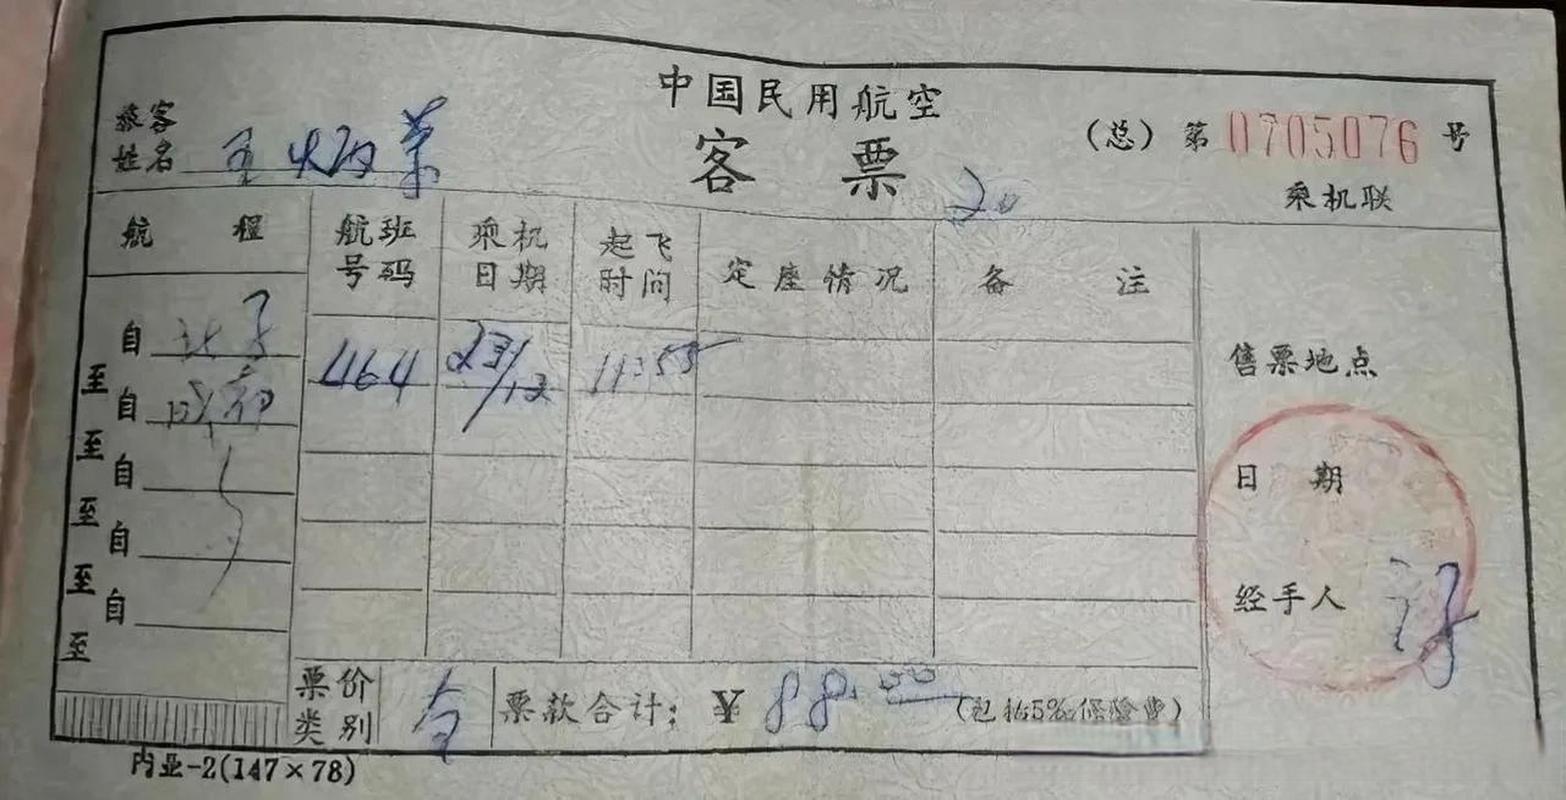 中国民用航空
客票
旅客
姓名
(总) 第 0705076 号
乘机联
20
航程 航班号码 乘机日期 起飞时间 定座情况 备注
自 北京 464 23/12 11:55
至
自 成都
至
自
至
自
至
自
至
售票地点
日期
经手人
票价类别
票款合计: ¥ 88.00 (包括5%保险费)
内业-2(147×78)